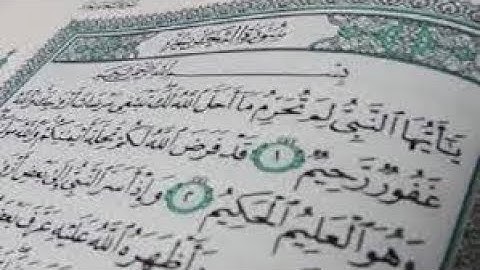 سُورَةُ التَّحْرِيمِ
بِسْمِ اللَّهِ الرَّحْمَٰنِ الرَّحِيمِ
يَٰٓأَيُّهَا ٱلنَّبِىُّ لِمَ تُحَرِّمُ مَآ أَحَلَّ ٱللَّهُ لَكَ تَبْتَغِى مَرْضَاتَ أَزْوَٰجِكَ وَٱللَّهُ
غَفُورٌ رَّحِيمٌ ١ قَدْ فَرَضَ ٱللَّهُ لَكُمْ تَحِلَّةَ أَيْمَٰنِكُمْ وَٱللَّهُ
وَهُوَ ٱلْعَلِيمُ ٱلْحَكِيمُ ٢ وَإِذْ أَسَرَّ ٱلنَّبِىُّ إِلَىٰ بَعْضِ
وَأَظْهَرَهُ ٱللَّهُ عَلَيْهِ عَرَّفَ بَعْضَهُ